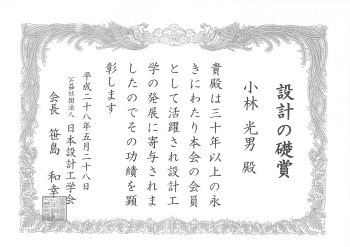 設計の礎賞
小林 光男 殿
貴殿は三十年以上の永
きにわたり本会の会員
として活躍され設計工
学の発展に寄与されま
したのでその功績を顕
彰します
平成二十八年五月二十八日
公益社団法人 日本設計工学会
会長 笹島 和幸